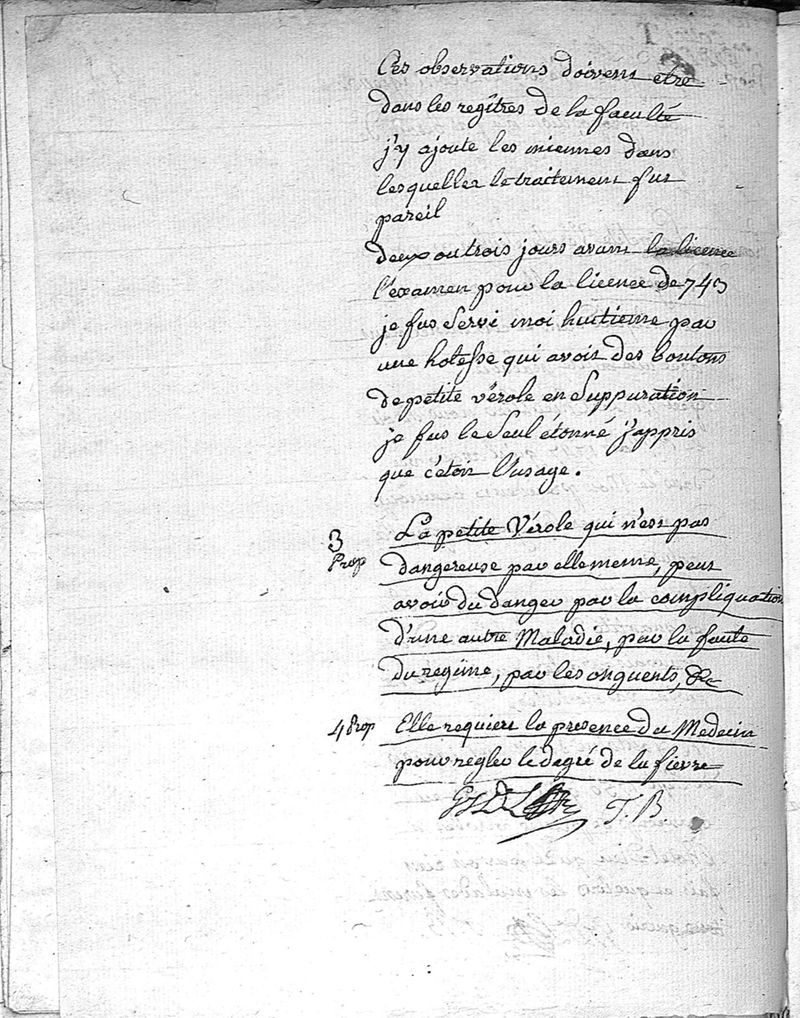 Ces observations doivent etre
dans les regîtres de la faculté
j'y ajoute les miennes dans
lesquelles le traitement fut
pareil
deux ou trois jours avant la licence
l'examen pour la licence de 743
je fus servi moi huitieme par
une hotesse qui avoit des boutons
de petite vérole en suppuration
je fus le seul étonné j'appris
que c'étoit l'usage.
3 La petite Vérole qui n'est pas
Prop dangereuse par elle meme, peut
avoir du danger par la compliquation
d'une autre Maladie, par la faute
du regime, par les onguents, &c
4 Prop Elle requiert la presence du Medecin
pour regler le degré de la fievre
T. B.